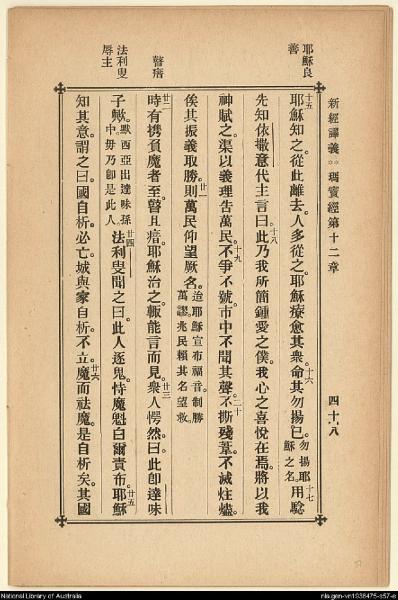 新經譯義 瑪竇經第十二章 四十八
耶穌良善
法利叟辱主
瞽瘖
十五耶穌知之。從此離去。人多從之。耶穌療愈其衆。十六命其勿揚己。勿揚耶穌之名。十七用騐
先知依撒意代主言曰。十八此乃我所簡鍾愛之僕。我心之喜悅在焉。將以我
神賦之。渠以義理告萬民。十九不爭不號。市中不聞其聲。二十不撕殘葦。不滅炷燼。
俟其振義取勝。廿一則萬民仰望厥名。迨耶穌宣布福音。制勝萬謬。兆民賴其名望救。
廿二時有携負魔者至。瞽且瘖。耶穌治之。輙能言而見。廿三衆人愕然曰。此卽達味
子歟。默西亞出達味孫中。毋乃卽是此人。廿四法利叟聞之曰。此人逐鬼。恃魔魁白爾責布。廿五耶穌
知其意。謂之曰。國自析。必亡。城與家自析。不立。廿六魔而祛魔。是自析矣。其國
National Library of Australia
nla.gen-vn1236475-s57-e